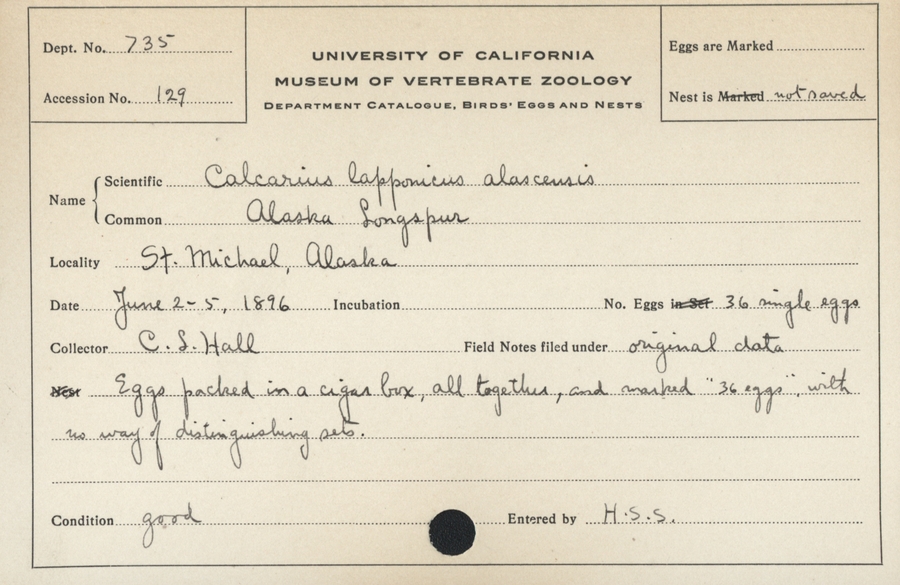 Dept. No. 735
Accession No. 129
UNIVERSITY OF CALIFORNIA
MUSEUM OF VERTEBRATE ZOOLOGY
DEPARTMENT CATALOGUE, BIRDS' EGGS AND NESTS
Eggs are Marked
Nest is Marked not saved
Name
Scientific Calcarius lapponicus alascensis
Common Alaska Longspur
Locality St. Michael, Alaska
Date June 2-5, 1896 Incubation No. Eggs in Set 36 single eggs
Collector C. S. Hall Field Notes filed under original data
Nest Eggs packed in a cigar box, all together, and marked "36 eggs", with
no way of distinguishing sets.
Condition good Entered by H.S.S.